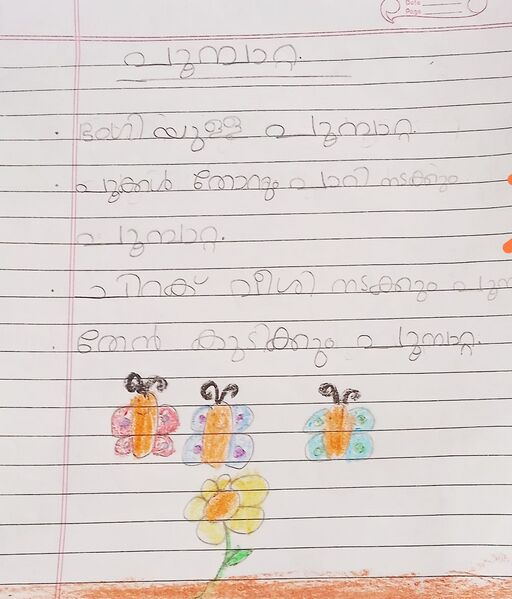 Date
Page
പൂമ്പാറ്റ.
· ഭംഗിയുള്ള പൂമ്പാറ്റ.
· പൂക്കൾ തോറും പാറി നടക്കും
പൂമ്പാറ്റ.
· ചിറക് വീശി നടക്കും
തേൻ കുടിക്കും പൂമ്പാറ്റ.